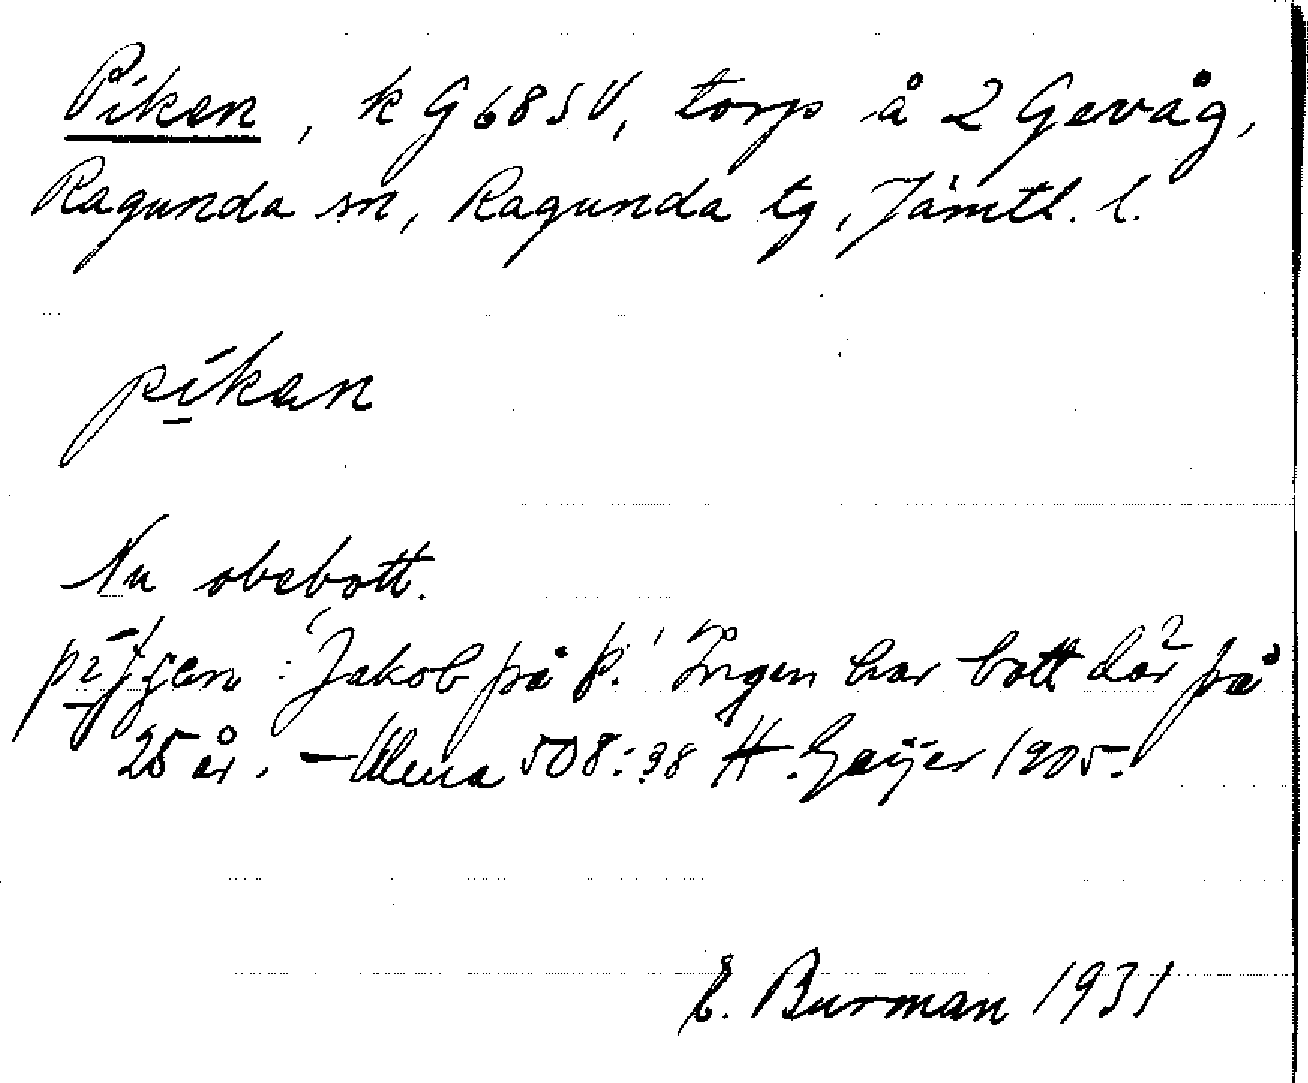 Piken, k G 685 V, torp å 2 Gevåg,
Ragunda sn, Ragunda tg, Jämtl. l.
píkan
Nu obebott.
: 'Jakob på P.' Ingen har bott där på
25 år. – Ulma 508:98 H. Geijer 1905.
E. Burman 1931